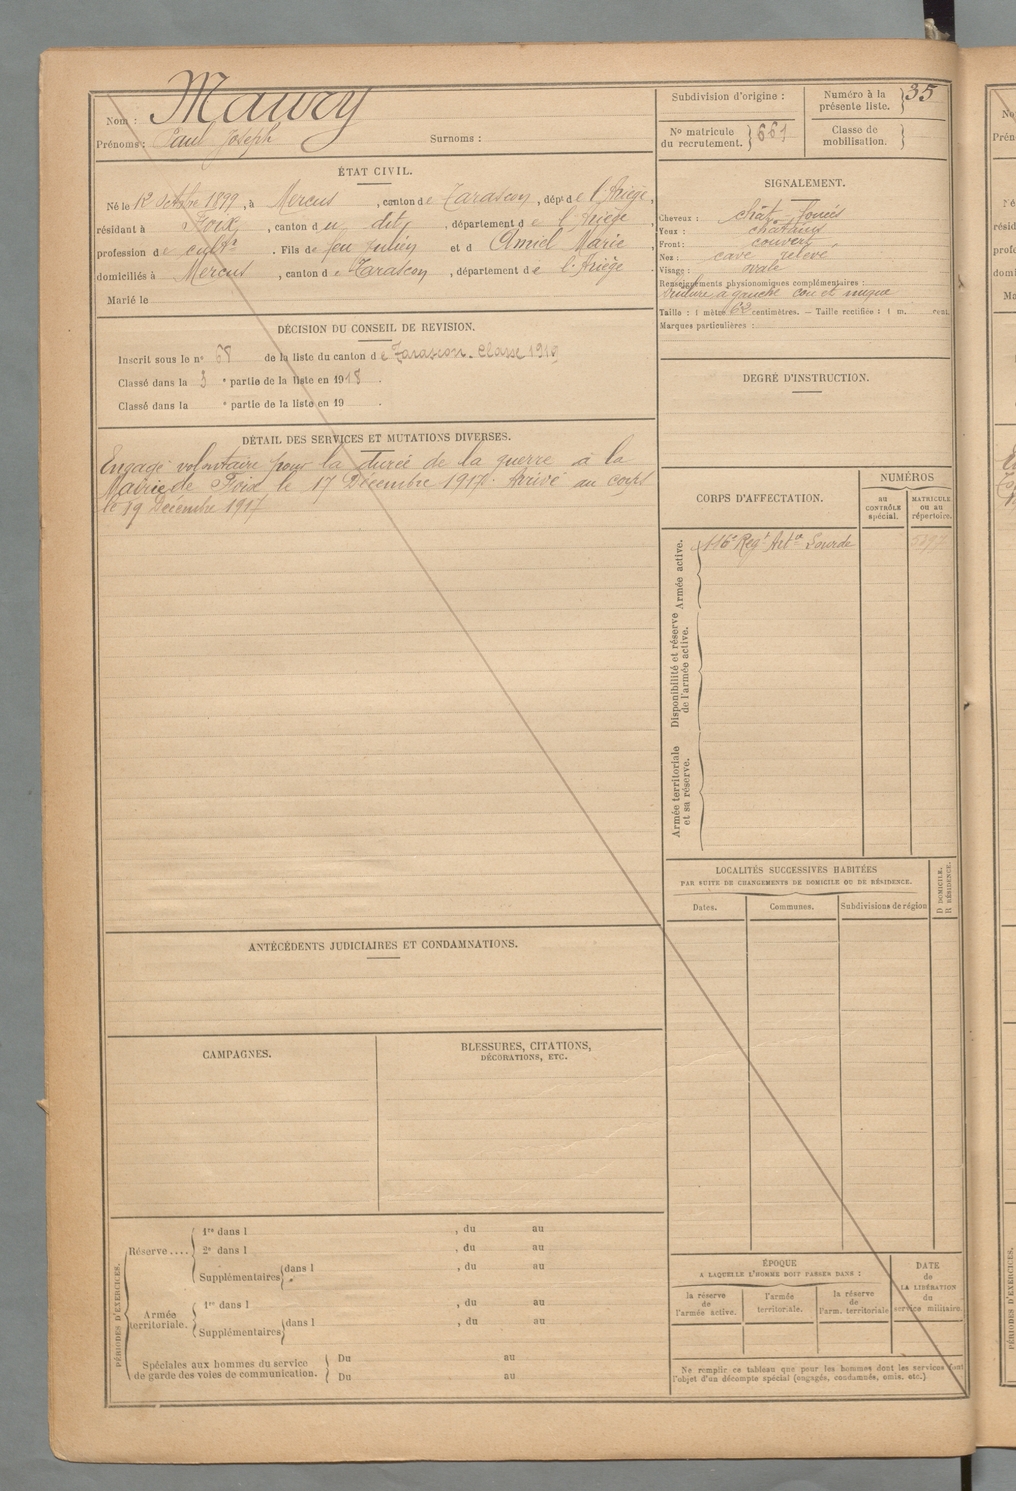 Nom : Maury
Prénoms : Paul Joseph Surnoms :
Subdivision d'origine :
Numéro à la présente liste. } 35
No matricule du recrutement. } 661
Classe de mobilisation. }
ÉTAT CIVIL.
Né le 12 Octobre 1899, à Mercus, canton de Tarascon, dépt de l'Ariège,
résidant à Foix, canton du dit, département de l'Ariège,
profession de cultr. Fils de feu Julien et d Amiel Marie,
domiciliés à Mercus, canton de Tarascon, département de l'Ariège
Marié le
DÉCISION DU CONSEIL DE REVISION.
Inscrit sous le no 68 de la liste du canton de Tarascon. Classe 1919
Classé dans la 3 e partie de la liste en 1918.
Classé dans la e partie de la liste en 19 .
SIGNALEMENT.
Cheveux : chât. foncés
Yeux : châtains
Front : couvert
Nez : cave relevé
Visage : ovale
Renseignements physionomiques complémentaires :
à gauche cou et nuque
Taille : 1 mètre 62 centimètres. — Taille rectifiée : 1 m. cent.
Marques particulières :
DEGRÉ D'INSTRUCTION.
DÉTAIL DES SERVICES ET MUTATIONS DIVERSES.
Engagé volontaire pour la durée de la guerre à la
Mairie de Foix le 17 Décembre 1917. Arrivé au corps
le 19 Décembre 1917
CORPS D'AFFECTATION.
NUMÉROS
au CONTRÔLE spécial.
MATRICULE ou au répertoire.
Armée active.
116e Regt Artie Lourde
Disponibilité et réserve de l'armée active.
Armée territoriale et sa réserve.
LOCALITÉS SUCCESSIVES HABITÉES
PAR SUITE DE CHANGEMENTS DE DOMICILE OU DE RÉSIDENCE.
Dates. Communes. Subdivisions de région
D DOMICILE.
R RÉSIDENCE.
ANTÉCÉDENTS JUDICIAIRES ET CONDAMNATIONS.
CAMPAGNES.
BLESSURES, CITATIONS,
DÉCORATIONS, ETC.
PÉRIODES D'EXERCICES.
Réserve....
1re dans l , du au
2e dans l , du au
Supplémentaires dans l , du au
Armée territoriale.
1re dans l , du au
Supplémentaires dans l , du au
Spéciales aux hommes du service
de garde des voies de communication.
Du au
Du au
ÉPOQUE
A LAQUELLE L'HOMME DOIT PASSER DANS :
la réserve de l'armée active.
l'armée territoriale.
la réserve de l'arm. territoriale
DATE de LA LIBÉRATION du service militaire.
Ne remplir ce tableau que pour les hommes dont les services font
l'objet d'un décompte spécial (engagés, condamnés, omis, etc.)